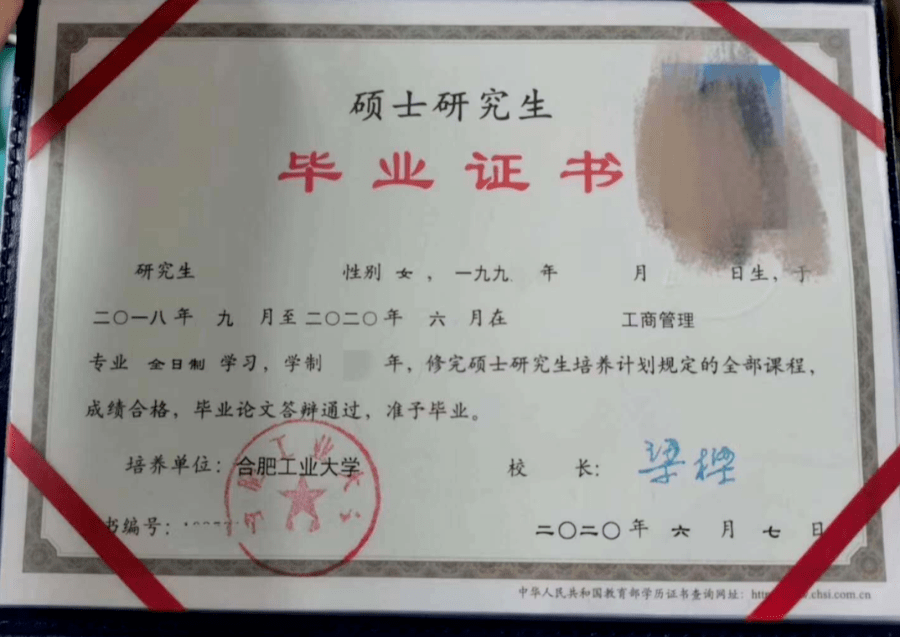 硕士研究生
毕业证书
研究生 性别 女 ，一九九 年 月 日生，于
二〇一八 年 九 月至 二〇二〇 年 六 月在 工商管理
专业 全日制 学习，学制 年，修完硕士研究生培养计划规定的全部课程，
成绩合格，毕业论文答辩通过，准予毕业。
培养单位：合肥工业大学 校 长：梁樑
书编号： 二〇二〇 年 六 月 七 日
中华人民共和国教育部学历证书查询网址： chsi.com.cn